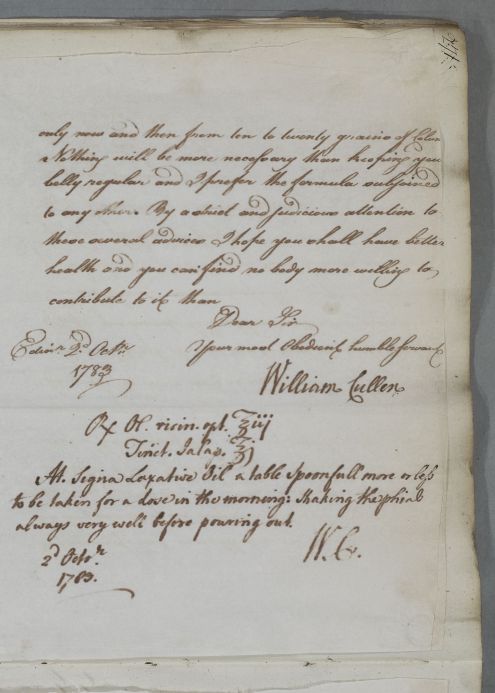 only now and then from ten to twenty grains of Colum
Nothing will be more necessary than keeping your
belly regular and I prefer the formula subjoined
to any other. By a strict and judicious attention to
these several advices I hope you shall have better
health and you can find no body more willing to
contribute to it than
Dear Sir
Edinr. 2d. Octr.
1783
Your most Obedient humble servant
William Cullen
℞ Ol. ricin. opt. ℥iij
Tinct. Jalap. ℥j
M. Signa Laxative Oil a table Spoonfull more or less
to be taken for a dose in the morning: Shaking the phial
always very well before pouring out.
W. C.
2d Octr.
1783.